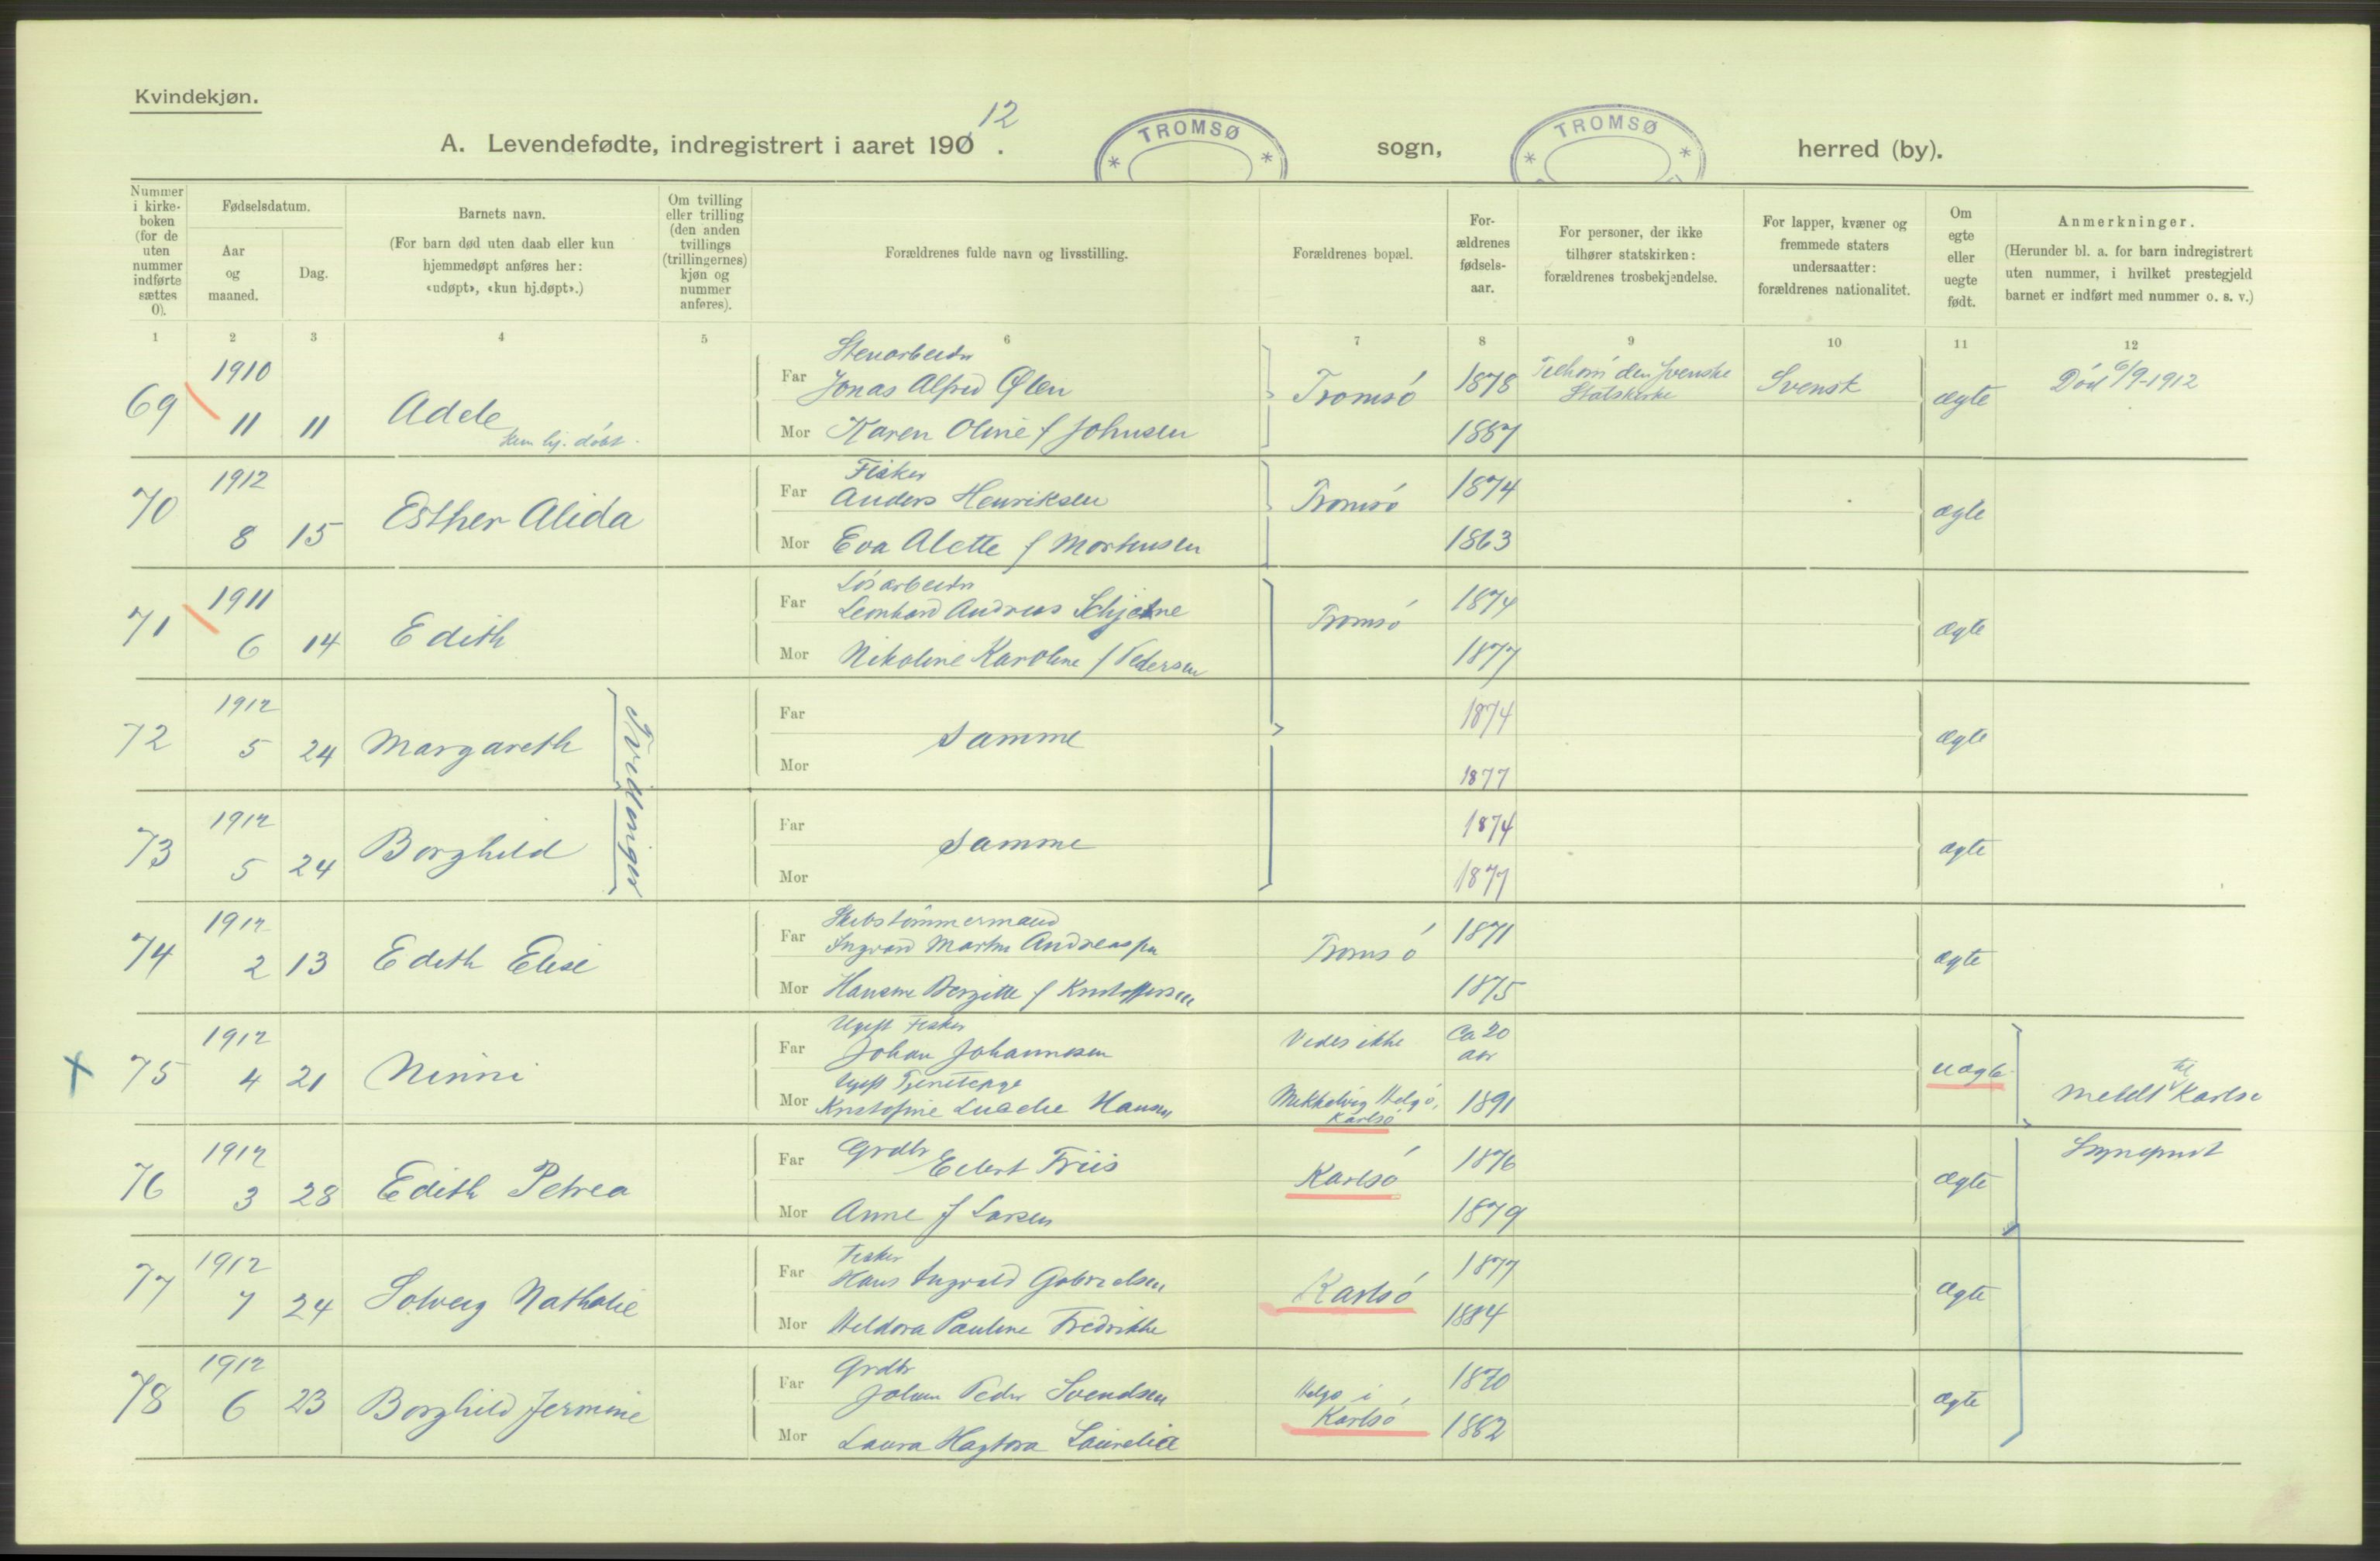 Kvindekjøn.
A. Levendefødte, indregistrert i aaret 190 12.
TROMSØ
sogn,
TROMSØ
herred (by).
Nummer i kirke-boken (for de uten nummer indførte sættes 0).
Fødselsdatum.
Aar og maaned.
Dag.
Barnets navn.
(For barn død uten daab eller kun hjemmedøpt anføres her: «udøpt», «kun hj.døpt».)
Om tvilling eller trilling (den anden tvillings (trillingernes) kjøn og nummer anføres).
Forældrenes fulde navn og livsstilling.
Forældrenes bopæl.
For-ældrenes fødsels-aar.
For personer, der ikke tilhører statskirken: forældrenes trosbekjendelse.
For lapper, kvæner og fremmede staters undersaatter: forældrenes nationalitet.
Om egte eller uegte født.
Anmerkninger.
(Herunder bl. a. for barn indregistrert uten nummer, i hvilket prestegjeld barnet er indført med nummer o. s. v.)
1 2 3 4 5 6 7 8 9 10 11 12
69 1910 11 11 Adele kun hj. døbt.
Far Stenarbeider Jonas Alfred Tromsø 1878 den svenske Statskirke Svensk ægte Død 6/9-1912
Mor Karen Oline f Johnsen 1887
70 1912 8 15 Esther Alida
Far Fisker Anders Henriksen Tromsø 1874 ægte
Mor Eva Alette f Mortensen 1863
71 1911 6 14 Edith
Far Løsarbeider Leonhard Andreas Tromsø 1874 ægte
Mor Nikoline Karoline f Pedersen 1877
72 1912 5 24 Margareth Tvillinger
Far Mor Samme 1874 1877 ægte
73 1912 5 24 Borghild
Far Mor Samme 1874 1877 ægte
74 1912 2 13 Edith Elise
Far Skibstømmermand Ingvard Martin Andreassen Tromsø 1871 ægte
Mor Hansine Bergitte f Kristoffersen 1875
75 1912 4 21 Ninni
Far Ugift Fisker Johan Johannesen Vides ikke Ca 20 aar uægte Meldt til Karlsø
Mor Ugift Kristofine Hansen Helgø, Karlsø 1891
76 1912 3 28 Edith Petrea
Far Grdbr Eilert Friis Karlsø 1876 ægte
Mor Anne f Larsen 1879
77 1912 7 24 Solveig Nathalie
Far Fisker Hans Ingvald Gabrielsen Karlsø 1877 ægte
Mor Heldora Pauline Fredrikke 1884
78 1912 6 23 Borghild Jermine
Far Grdbr Johan Peder Svendsen Helgø i Karlsø 1870 ægte
Mor Laura Hagtora 1862